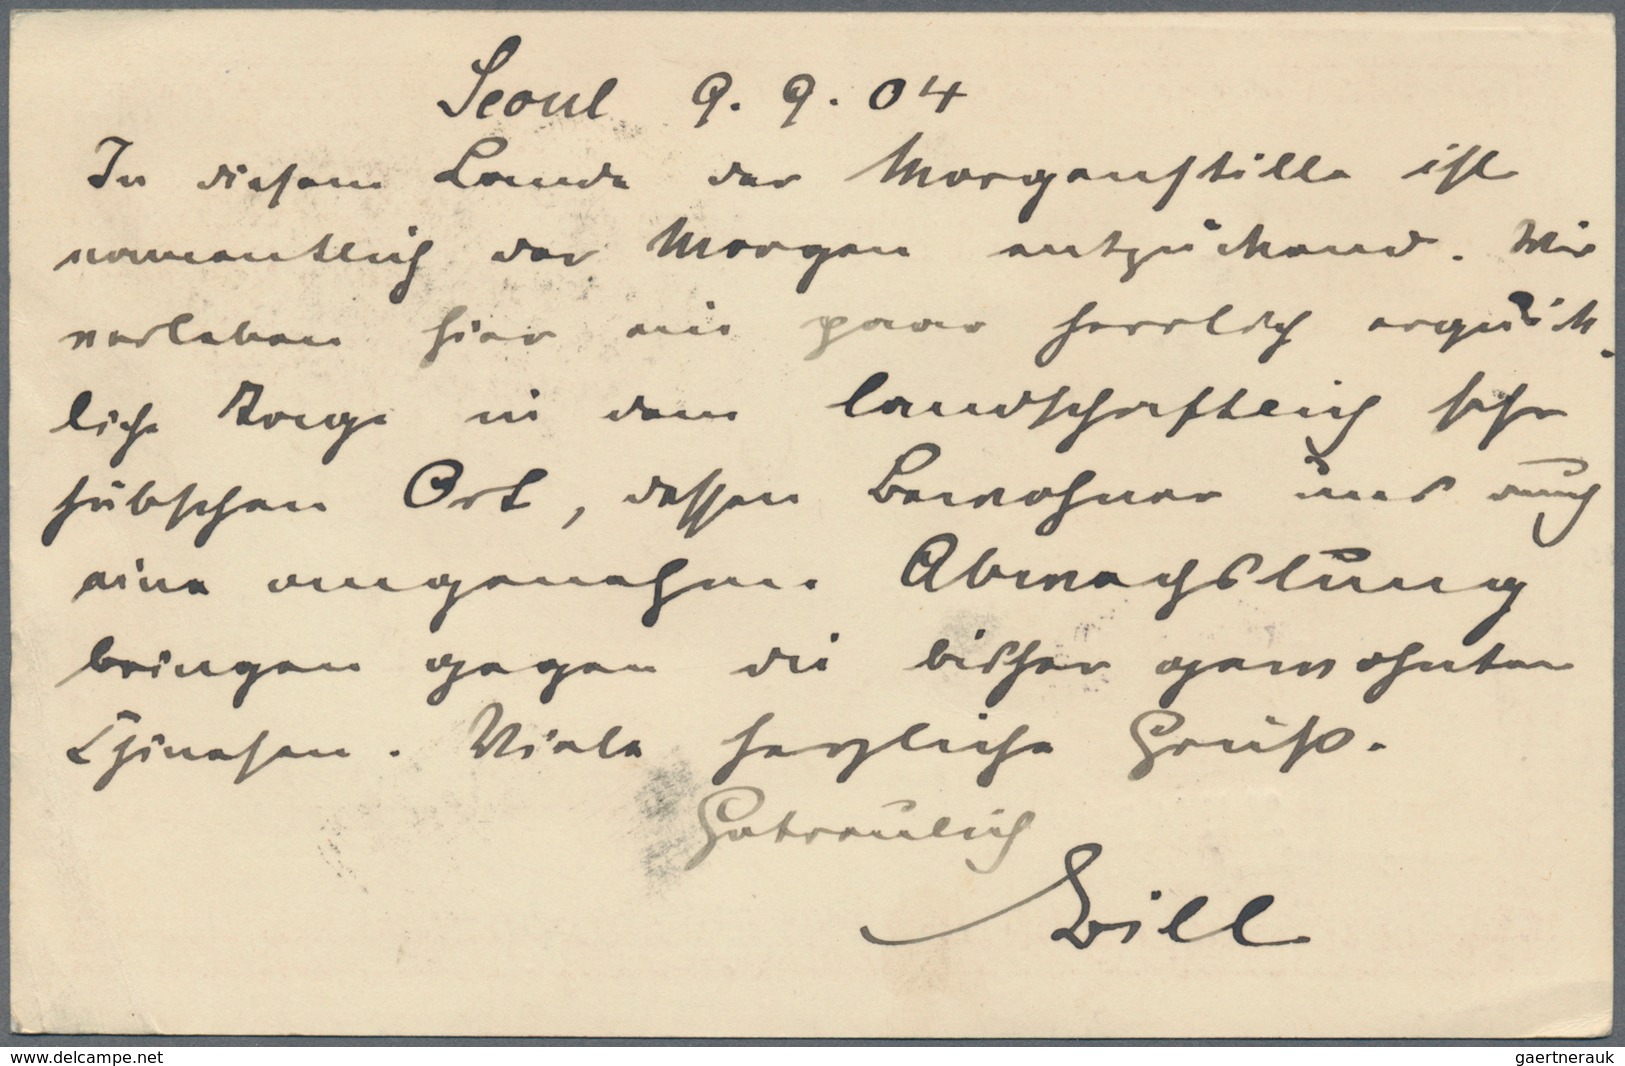 Seoul 9. 9. 04
In diesem Lande der Morgenstille ist
namentlich der Morgen entzückend. Wir
verleben hier ein paar herrlich erquick-
liche Tage in dem landschaftlich sehr
hübschen Ort, dessen Bewohner uns auch
eine angenehm. Abwechslung
bringen gegen die bisher gewohnten
Chinesen. Viele herzliche Grüße.
Getreulich
Will
www.delcampe.net
gaertnerauk